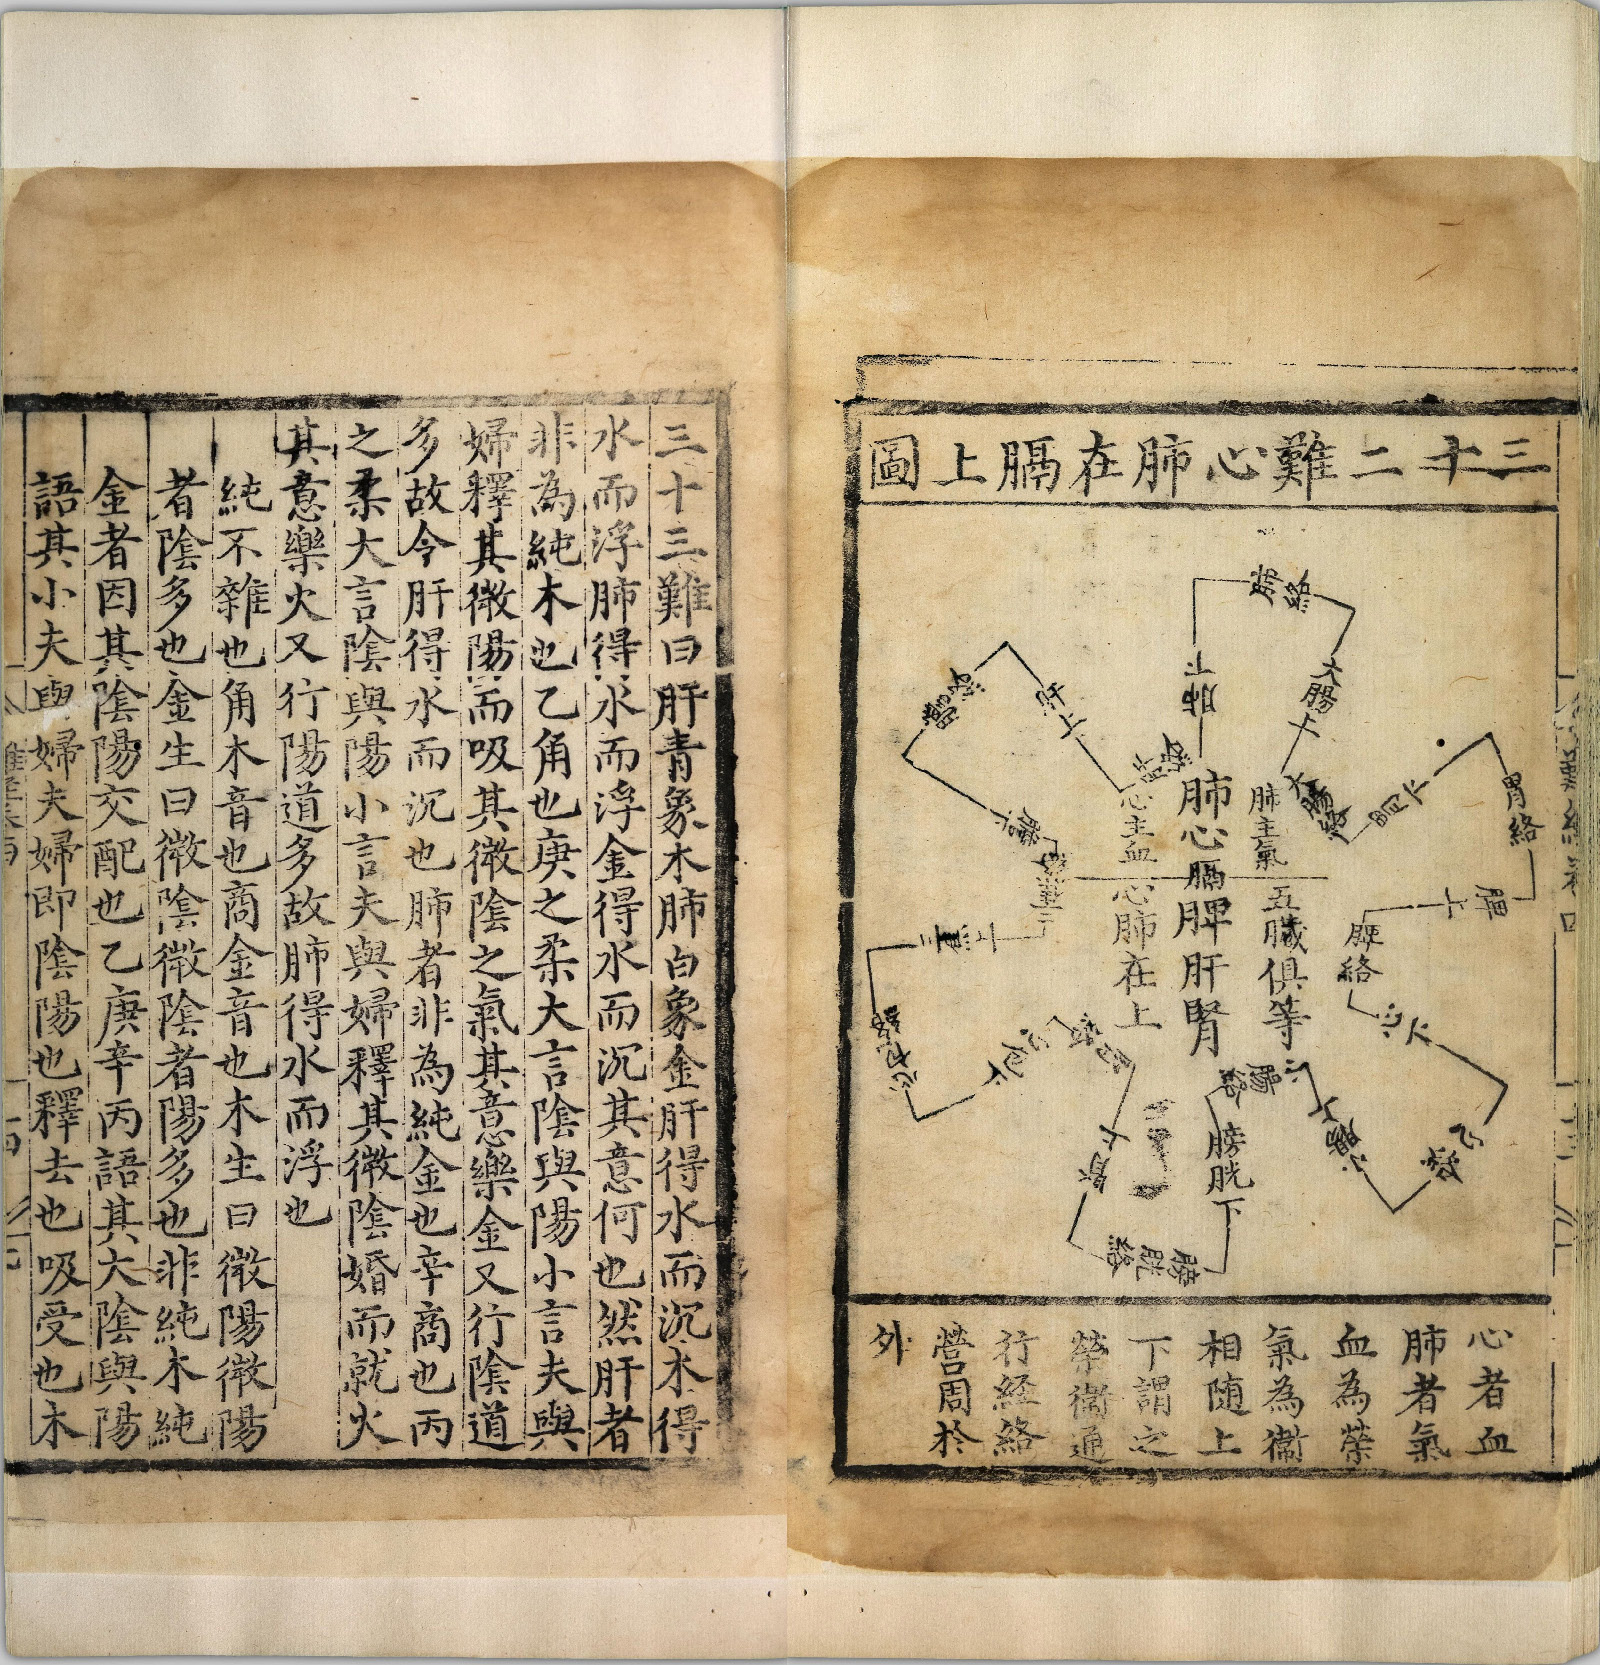 三十二難心肺在膈上圖
肺絡
大腸上
大腸絡
胃下
胃絡
脾上
脾絡
心下
心絡
小腸上
小腸絡
膀胱下
膀胱絡
腎上
腎絡
心包下
心包絡
三焦上
三焦絡
膽下
膽絡
肝上
肝絡
肺上
肺主氣
五臟俱等
肺心膈脾肝腎
心主血
心肺在上
心者血
肺者氣
血為榮
氣為衞
相隨上
下謂之
榮衞通
行經絡
營周於
外
三十三難曰肝青象木肺白象金肝得水而沉木得
水而浮肺得水而浮金得水而沉其意何也然肝者
非為純木也乙角也庚之柔大言陰與陽小言夫與
婦釋其微陽而吸其微陰之氣其意樂金又行陰道
多故令肝得水而沉也肺者非為純金也辛商也丙
之柔大言陰與陽小言夫與婦釋其微陰婚而就火
其意樂火又行陽道多故肺得水而浮也
純不雜也角木音也商金音也木生曰微陽微陽
者陰多也金生曰微陰微陰者陽多也非純木純
金者因其陰陽交配也乙庚辛丙語其大陰與陽
語其小夫與婦夫婦即陰陽也釋去也吸受也木